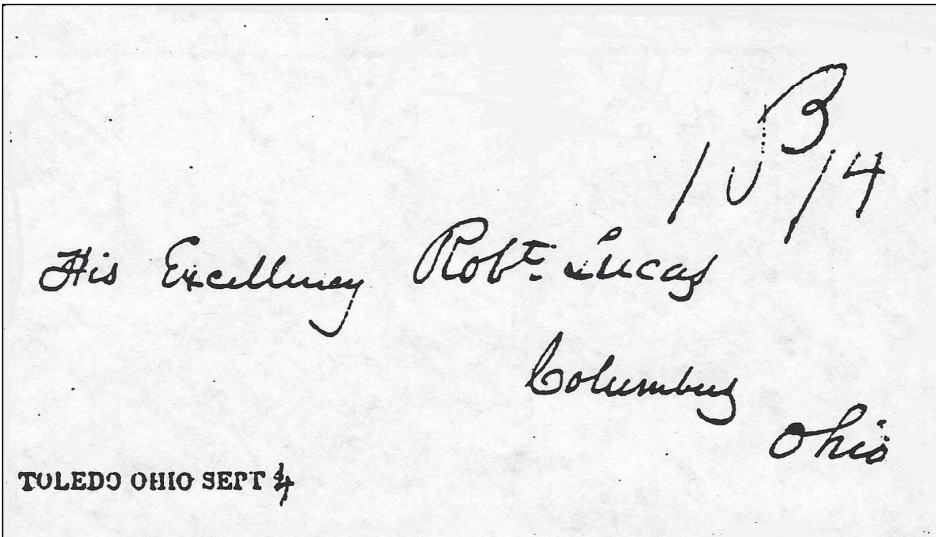 His Excellency Robt. Lucas
Columbus
Ohio
TOLEDO OHIO SEPT 4